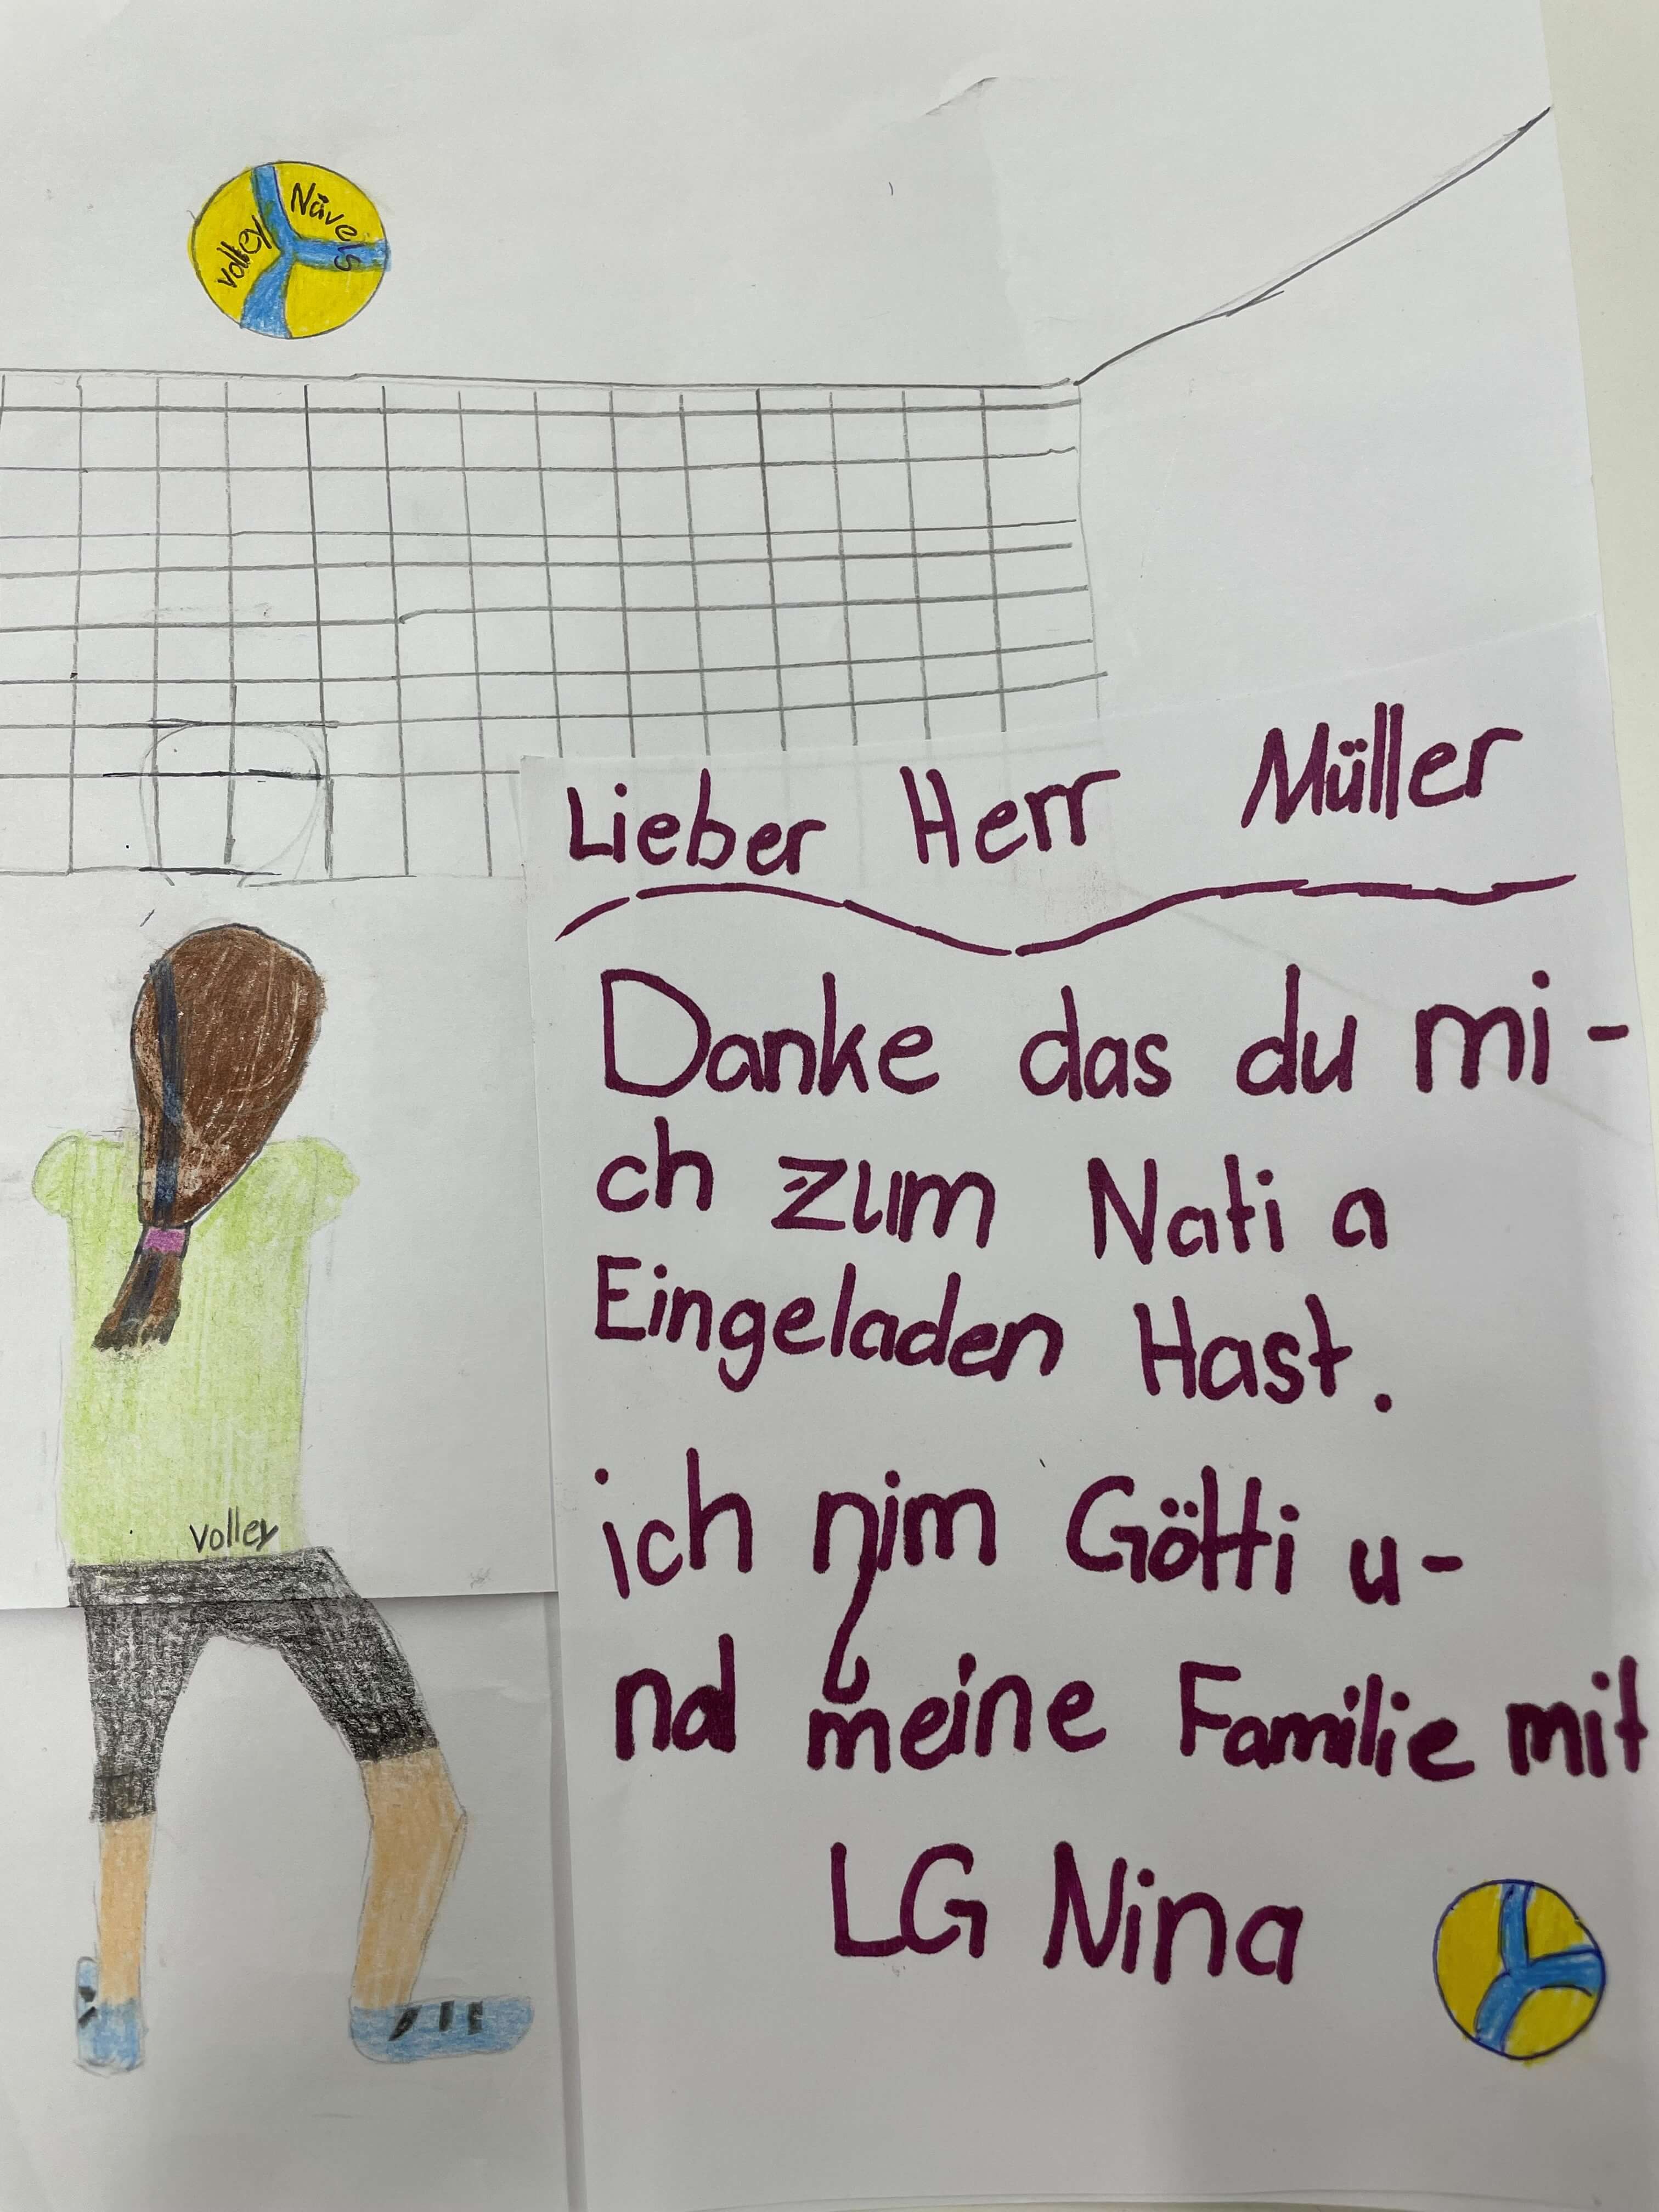 Volley Näfels
Lieber Herr Müller
Danke das du mi-
ch zum Nati a
Eingeladen Hast.
ich nim Götti u-
nd meine Familie mit
LG Nina
Volley